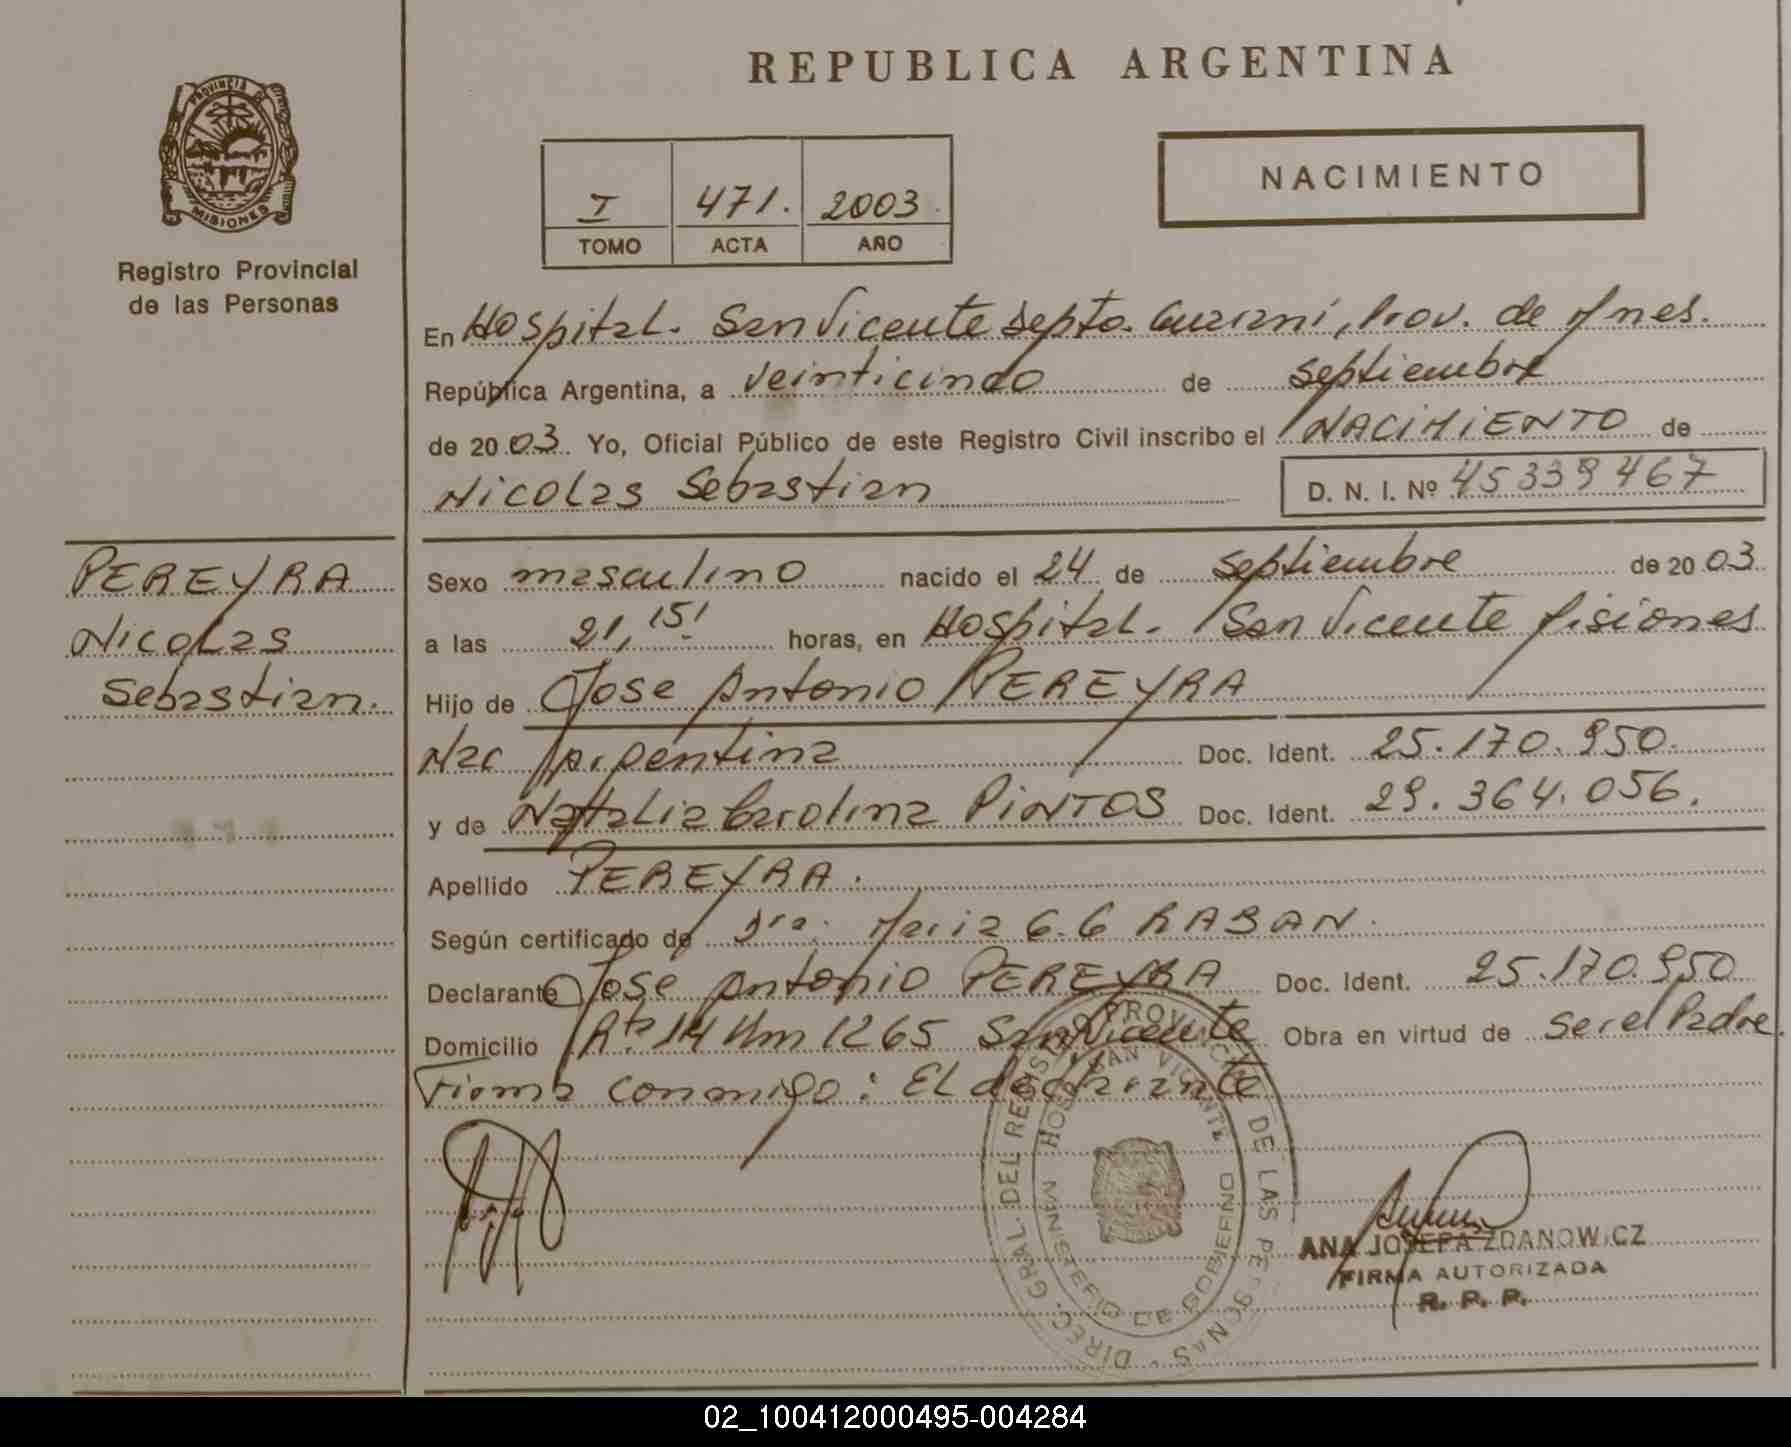 REPUBLICA ARGENTINA
PROVINCIA DE
MISIONES
Registro Provincial
de las Personas
I 471. 2003.
TOMO ACTA AÑO
NACIMIENTO
En Hospital. San Vicente Depto. Guarani, Prov. de Mnes.
República Argentina, a veinticinco de septiembre
de 2003. Yo, Oficial Público de este Registro Civil inscribo el NACIMIENTO de
Nicolas Sebastian D. N. I. Nº 45339467
PEREYRA
Nicolas
Sebastian.
Sexo masculino nacido el 24 de septiembre de 2003
a las 21,15! horas, en Hospital. San Vicente Misiones
Hijo de Jose Antonio PEREYRA
Nac Argentina Doc. Ident. 25.170.950.
y de Natalia Carolina PINTOS Doc. Ident. 29.364.056.
Apellido PEREYRA.
Según certificado de Dra. Maria G. G RABAN.
Declarante Jose Antonio PEREYRA Doc. Ident. 25.170.950
Domicilio Rta 14 Km 1265 San Vicente Obra en virtud de ser el Padre.
Firma conmigo: El declarante
DIREC. GRAL. DEL REGISTRO PROVINCIAL DE LAS PERSONAS
HOSP. SAN VICENTE
MINISTERIO DE GOBIERNO
ANA JOSEFA ZDANOWICZ
FIRMA AUTORIZADA
R. P. P.
02_100412000495-004284